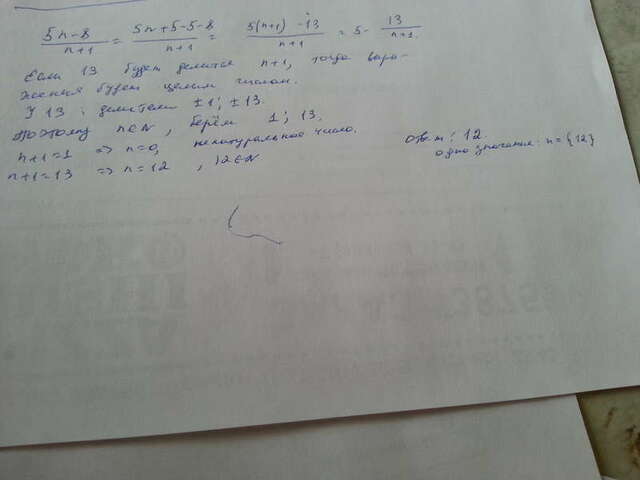 5n-8/n+1 = 5n+5-5-8/n+1 = 5(n+1)-13/n+1 = 5- 13/n+1.
Если 13 будет делится n+1, тогда выра-
жения будет целым числом.
У 13 : делители ±1; ±13.
поэтому n∈N, берём 1; 13.
n+1=1 => n=0, ненатуральное число.
n+1=13 => n=12, 12∈N
Ответ: 12
одно значения: n={12}